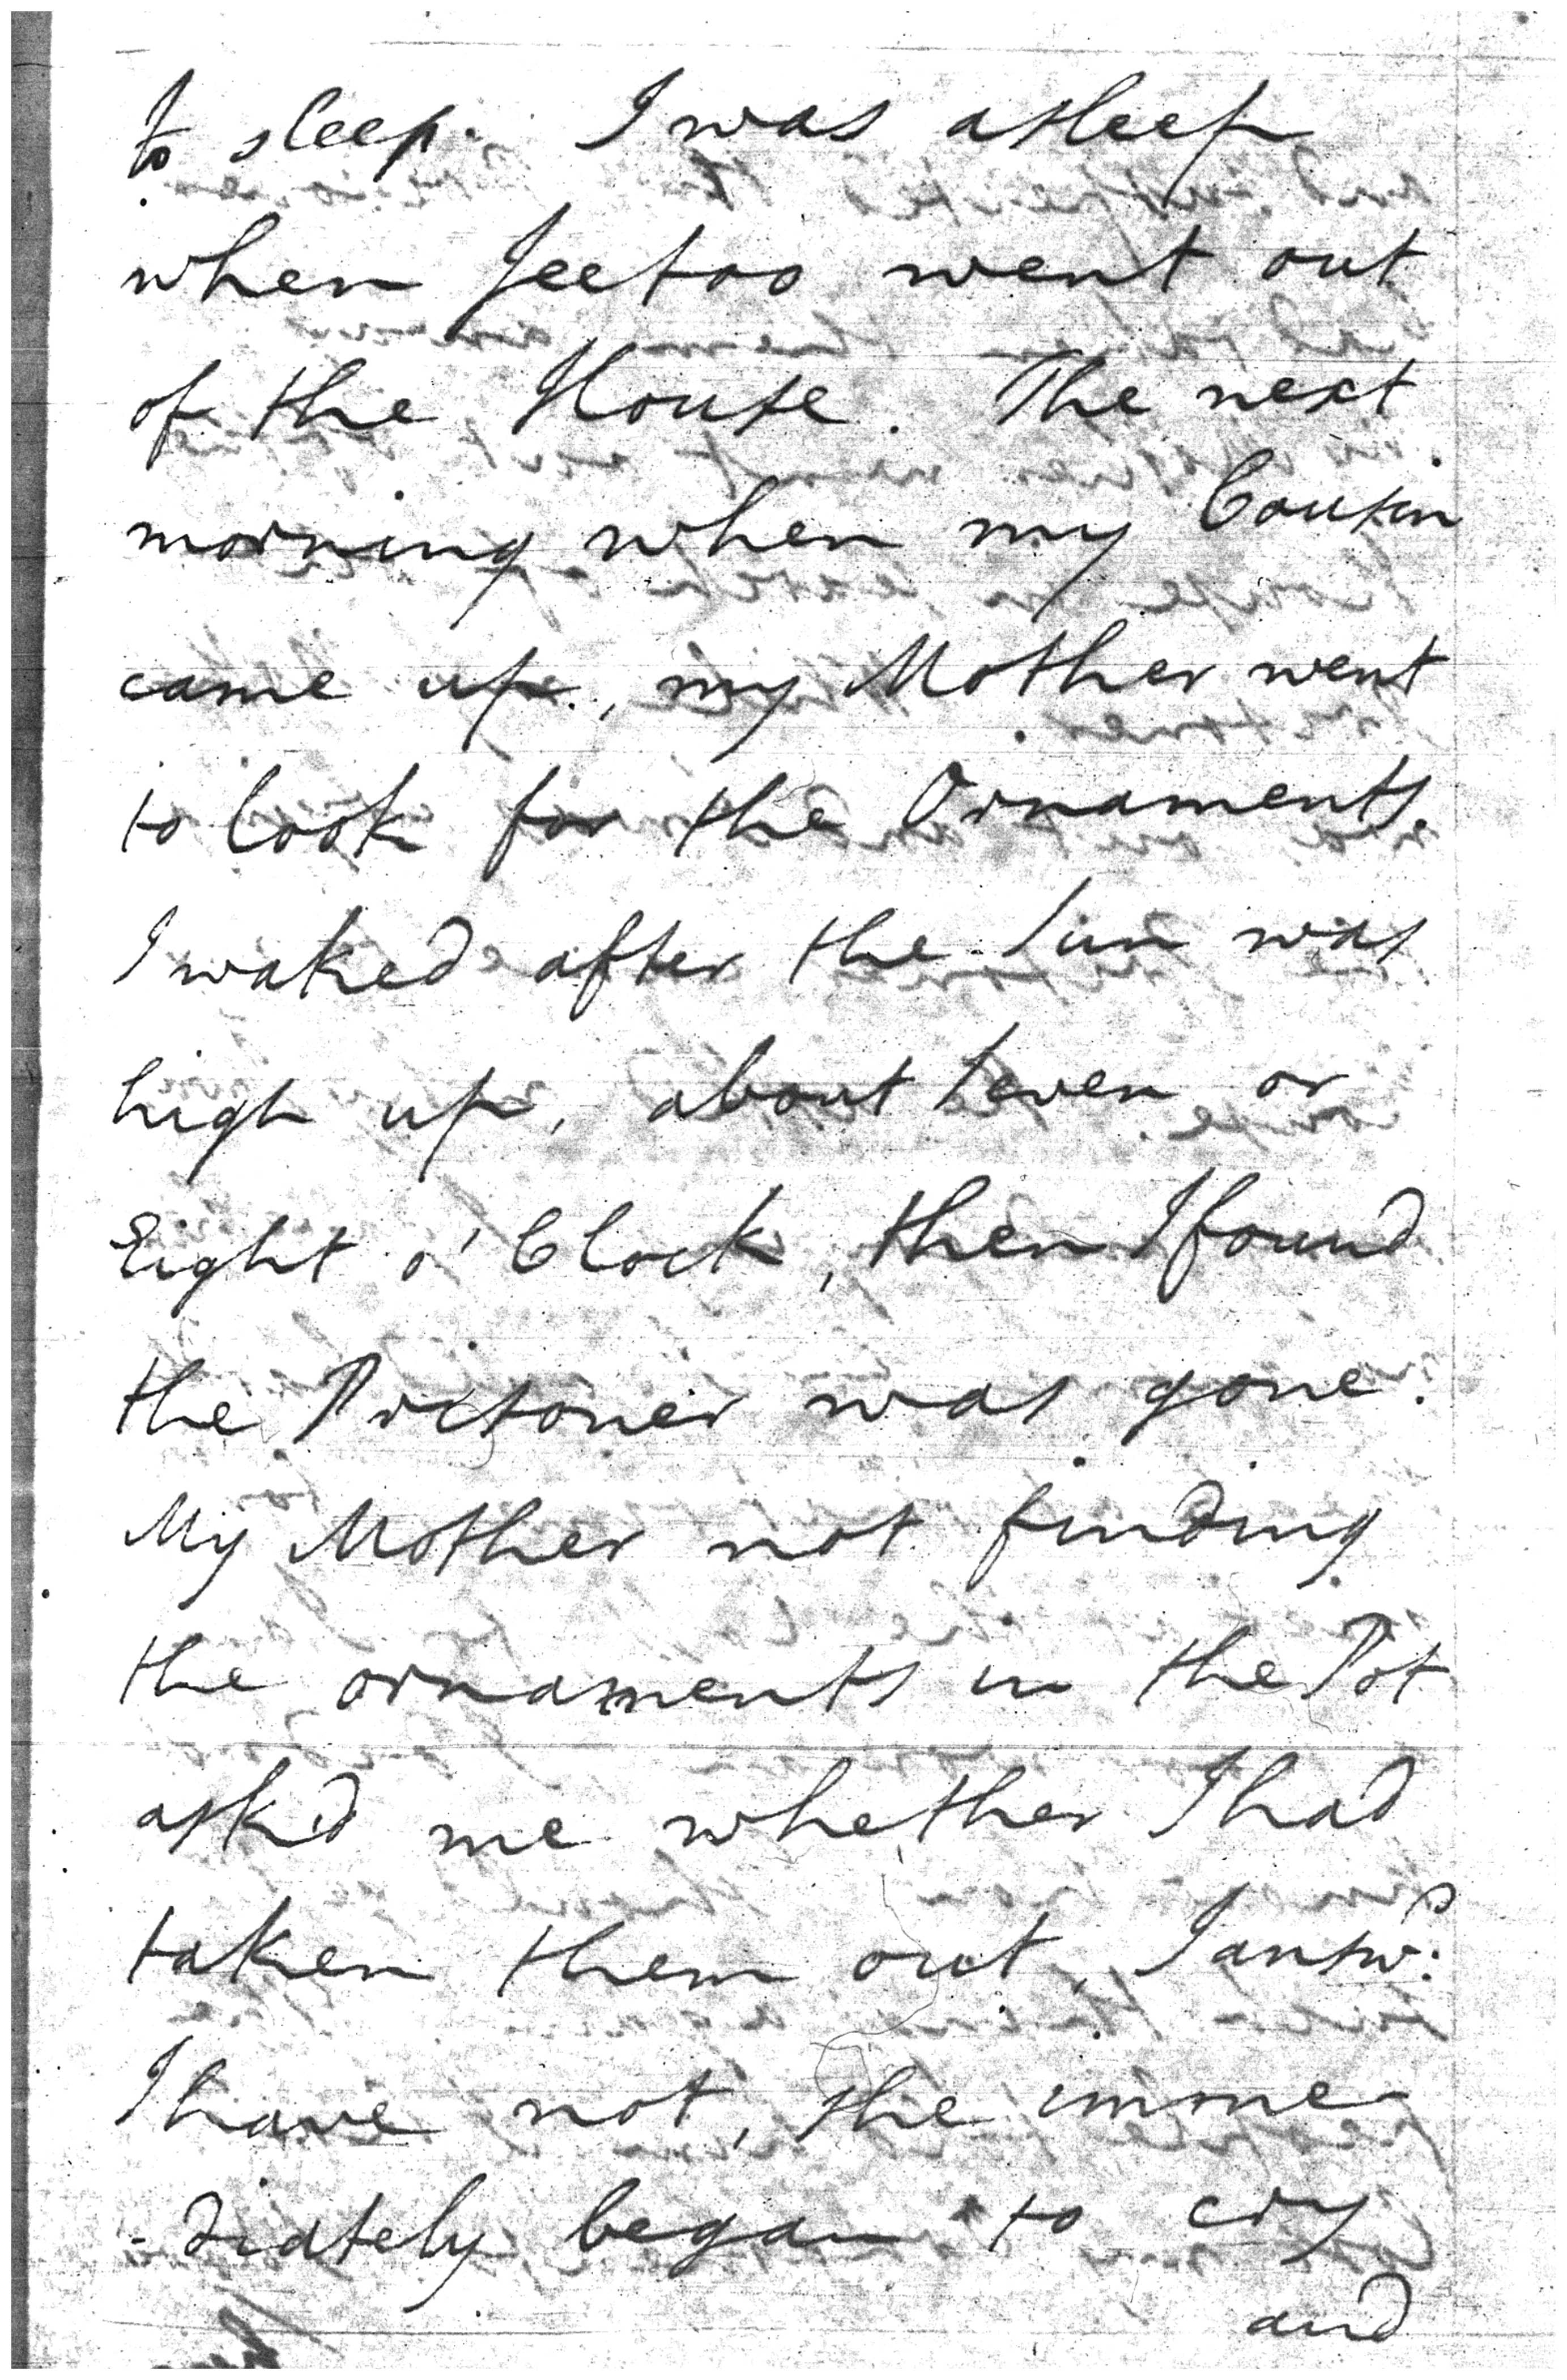 to sleep. I was asleep
when Jeetoo went out
of the House. The next
morning when my Cousin
came up, my Mother went
to look for the Ornaments.
I waked after the Sun was
high up, about Seven or
Eight o' Clock, then I found
the Prisoner was gone.
My Mother not finding
the ornaments in the Pot
ask'd me whether I had
taken them out, I answd.
I have not, she imme
-diately began to cry
and